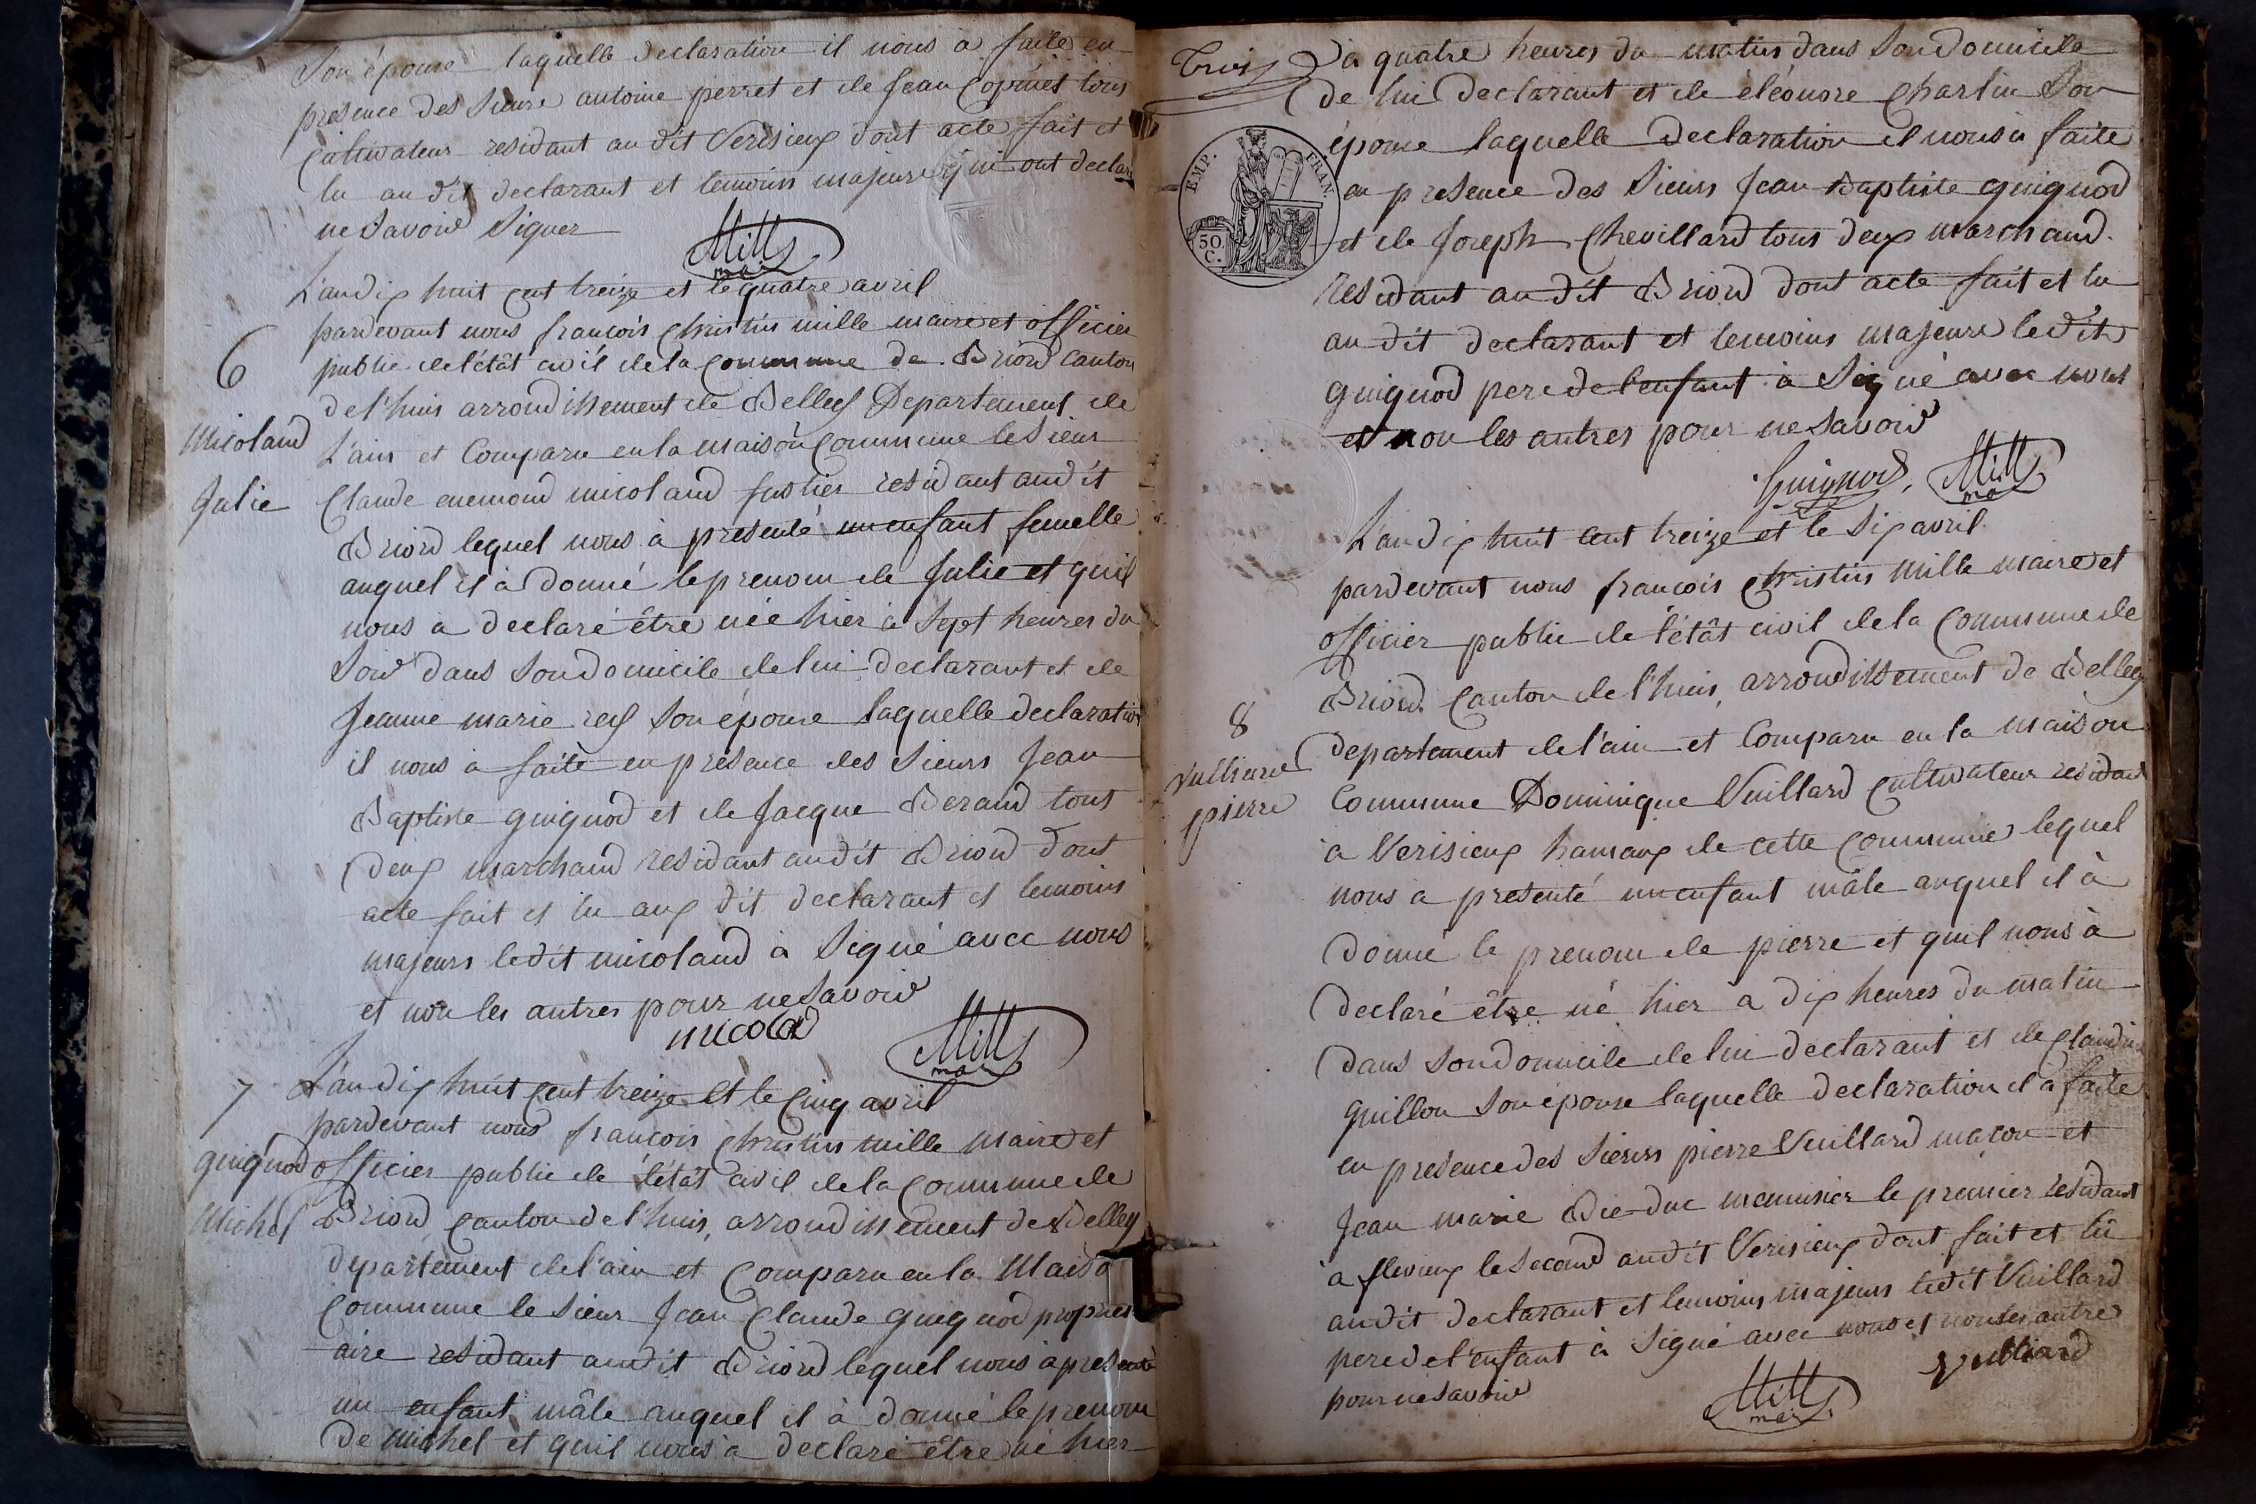 son épouse laquelle declaration il nous a faite en
presence des sieurs antoine perret et de Jean tous
cultivateur residant au dit Verisieux dont acte fait et
lu au dit declarant et temoins majeurs qui ont declaré
ne savoir signer
Mille
maire
L'an dix huit cent treize et le quatre avril
pardevant nous françois christin mille maire et officier
public de l'étât civil de la Commune de Briord Canton
de l'huis arrondissement de Belley Departement de
L'ain et Comparu en la maison Commune le sieur
Claude enemond micoland fustier residant au dit
Briord lequel nous à presenté un enfant femelle
auquel il à donné le prenom de Julie et quil
nous a declaré être née hier à sept heures du
soir dans son domicile de lui declarant et de
Jeanne marie rey son épouse laquelle declaration
il nous a faite en presence des sieurs Jean
Baptiste guignod et de Jacque Beraud tout
deux marchand residant au dit Briord dont
acte fait et lu aux dit declarant et temoins
majeurs ledit micoland à signé avec nous
et non les autres pour ne savoir
micolad
Mille
maire
6
Micoland
Julie
7
guignod
Michel
L'an dix huit cent treize et le cinq avril
pardevant nous françois christin mille maire et
officier public de l'étât civil de la Commune de
Briord canton de l'huis, arrondissement de Belley
departement de l'ain et Comparu en la Maison
Commune le sieur Jean Claude guignod propriet
aire residant au dit Briord lequel nous à presenté
un enfant mâle auquel il à donné le prenom
De Michel et quil nous a declaré être né hier
Trois
à quatre heures du matin dans son domicile
de lui Declarant et de éléonore Charlin son
épouse laquelle declaration il nous a faite
en presence des sieurs Jean Baptiste guignod
et de Joseph Chevillard tous deux marchand
residant au dit Briord dont acte fait et lu
au dit declarant et temoins majeure ledit
guignod pere de l'enfant à signé avec nous
et non les autres pour ne savoir
EMP. FRAN.
50.
C.
Guignod, Mille
maire
L'an dix huit cent treize et le six avril
pardevant nous françois christin mille maire et
officier public de l'étât civil de la Commune de
Briord Canton de l'huis, arrondissement de Belley
departement de l'ain et Comparu en la maison
Commune Dominique Vuillard Cultivateur residant
à Verisieux hamaux de cette Commune lequel
nous a presenté un enfant mâle auquel il à
donné le prenom de pierre et quil nous à
declaré être né hier a dix heures du matin
dans son domicile de lui declarant et de Claudine
guillon son épouse laquelle declaration il a faite
en presence des sieurs pierre Vuillard maçon et
Jean marie Die-duc menuisier le premier residant
a flevieux le second au dit Verisieux dont fait et lu
au dit declarant et temoins majeurs ledit Vuillard
pere de l'enfant à signé avec nous et non les autres
pour ne savoir
8
pierre
Vulliard
Mille
maire